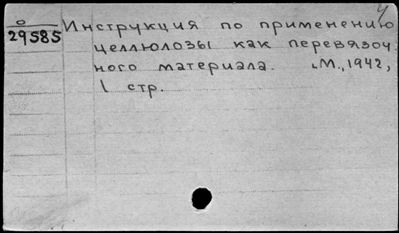 У
о
29585 Инструкция по применению
целлюлозы как перевязоч
ного материала. М., 1942,
1 стр.